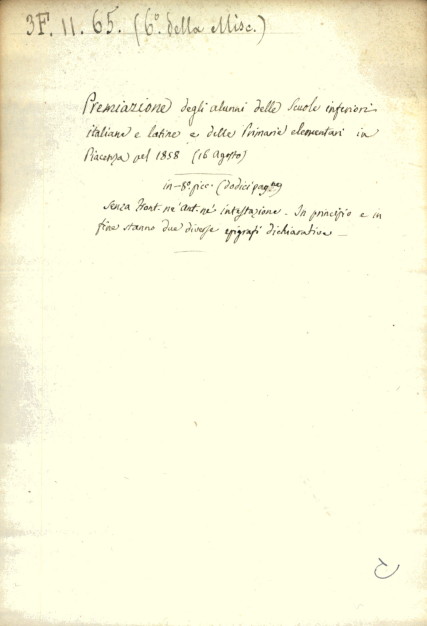 3F. 11. 65. (6º della Misc.)
Premiazione degli alunni delle Scuole inferiori
italiane e latine e delle Primarie elementari in
Piacenza nel 1858 (16 Agosto)
in-8º picc. (dodici pagine)
Senza Front. nè Ant. nè intestazione. In principio e in
fine stanno due diverse epigrafi dichiarative —